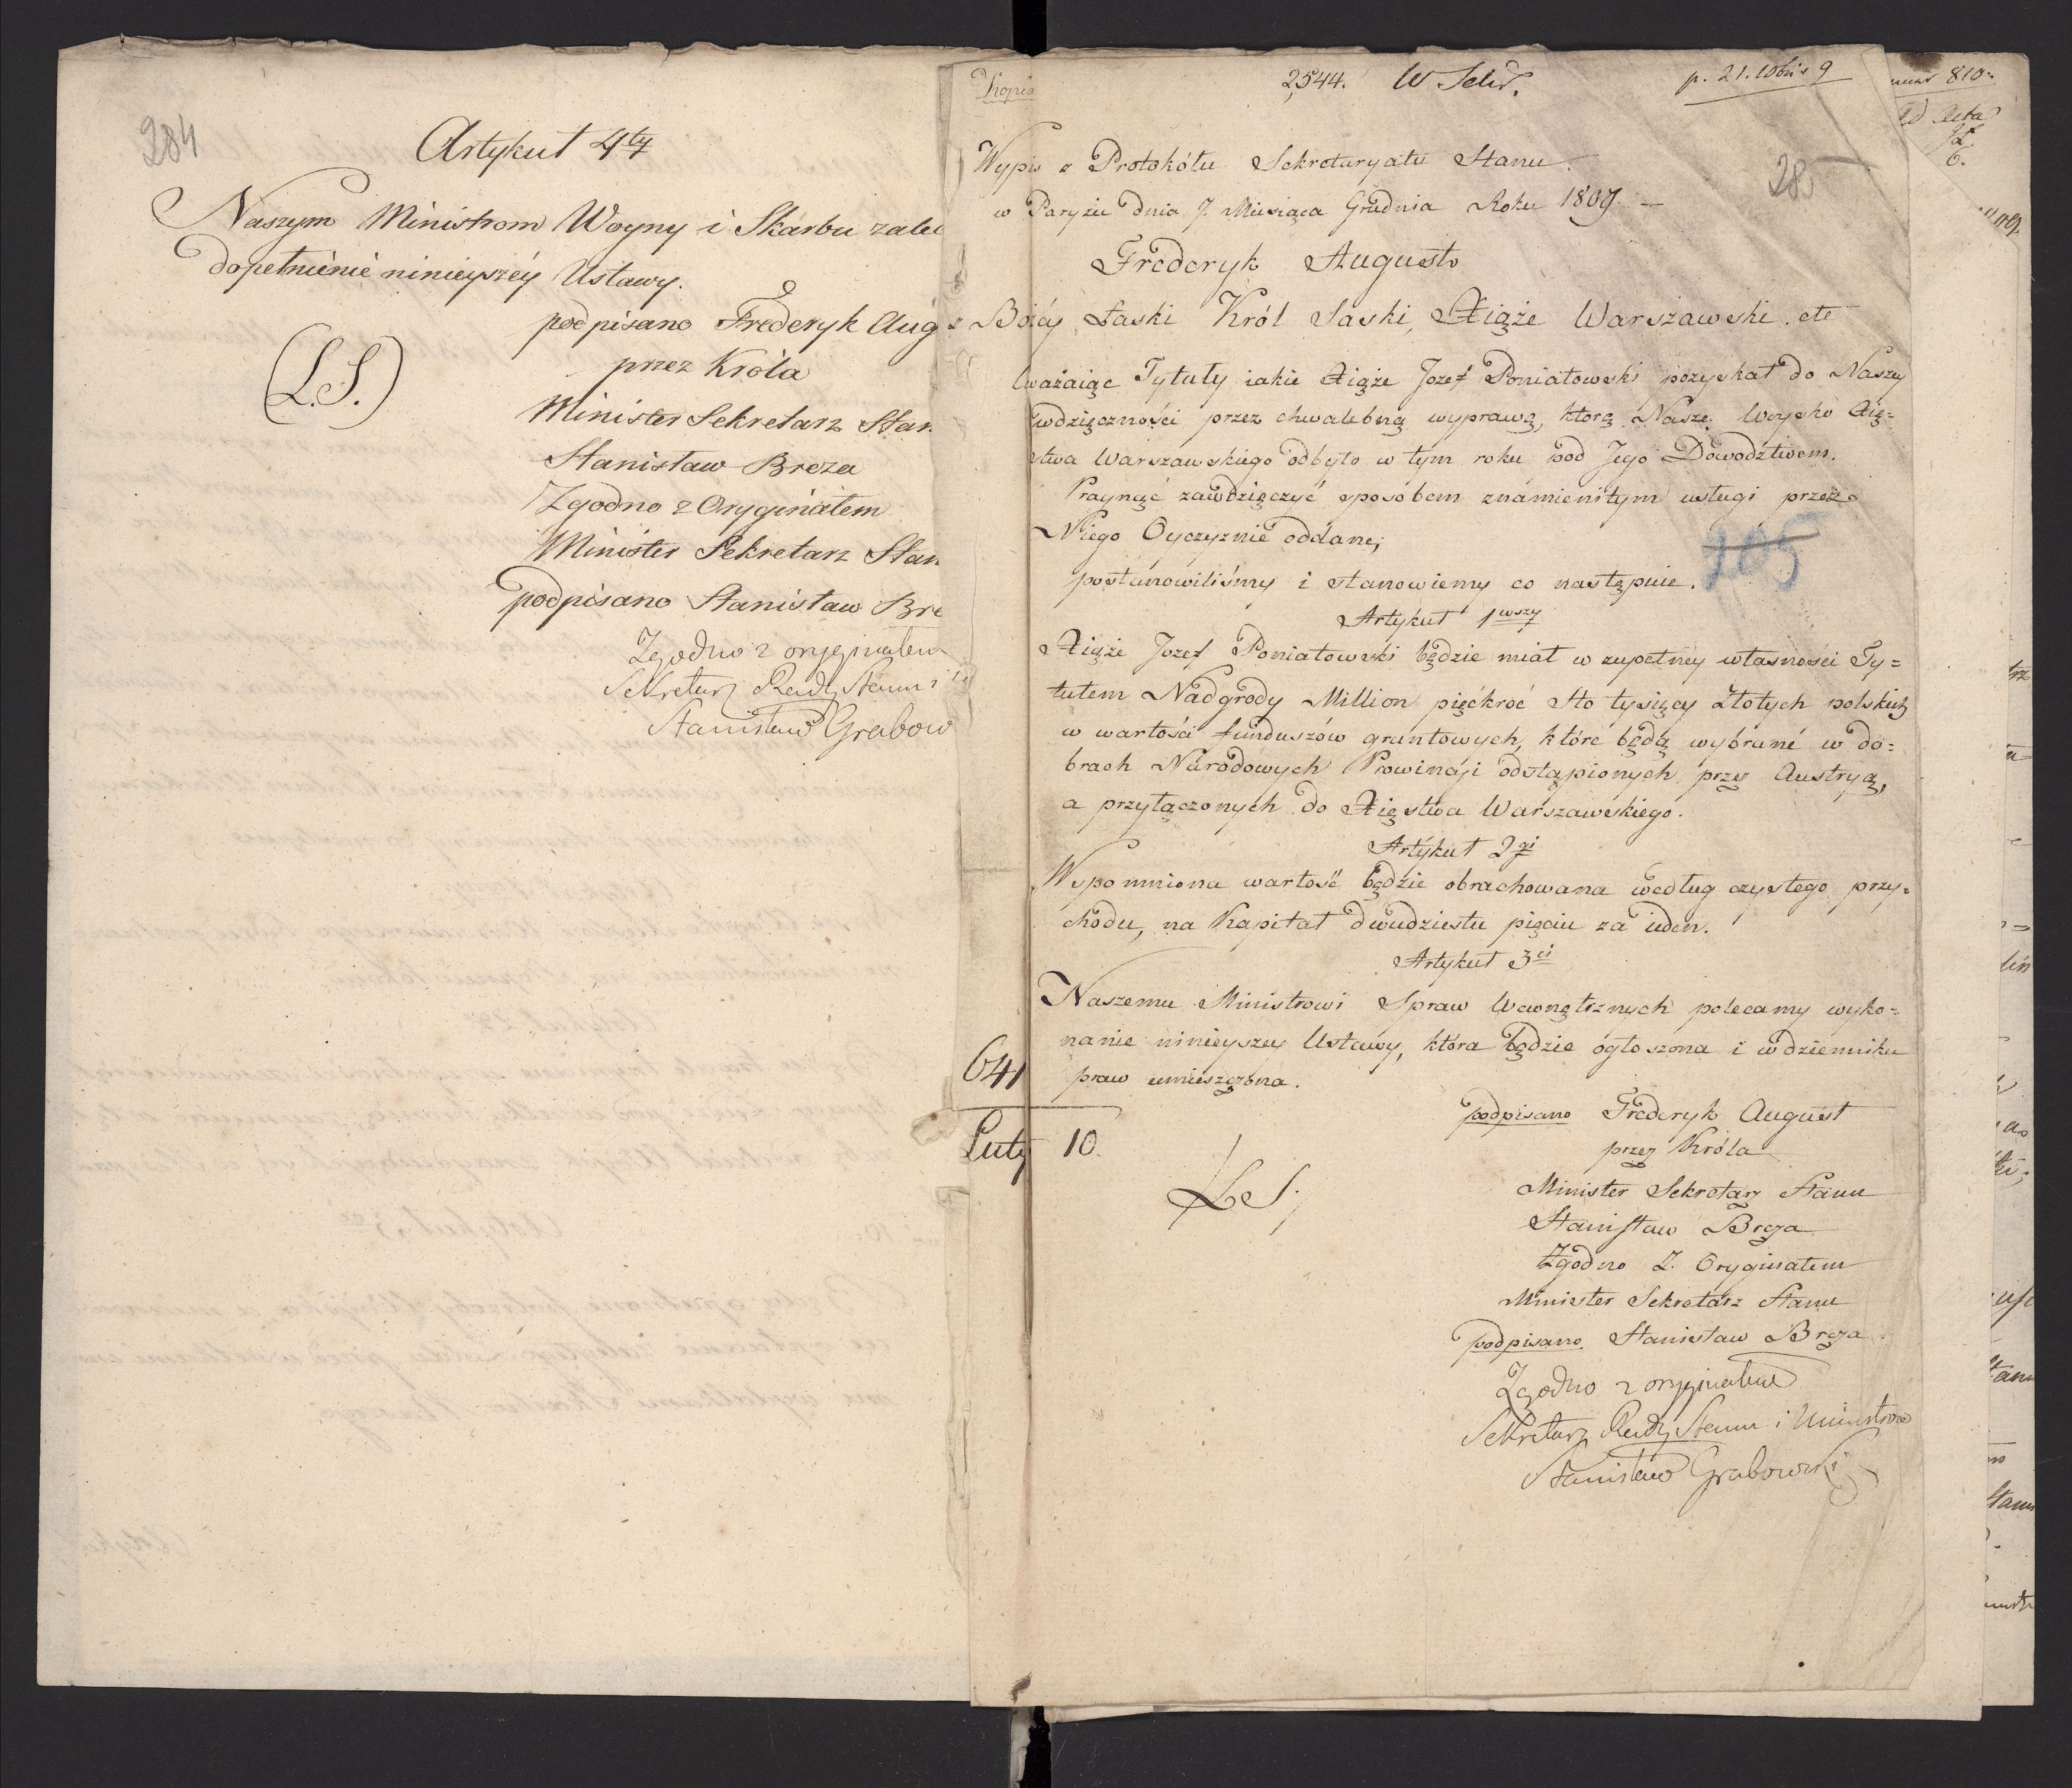 284
Artykuł 4ty
Naszym Ministrom Woyny i Skarbu zalec
dopełnienie ninieyszéy Ustawy.
podpisano Frederyk Aug
(L.S.)
przez Króla
Minister Sekretarz Stan
Stanisław Breza
Zgodno z Oryginałem
Minister Sekretarz Stan
podpisano Stanisław Bre
Zgodno z oryginałem
Sekretarz Rady Stanu i
Stanisław Grabow
Kopia
2,544. W Schr. p. 21. 10bris 9
Wypis z Protokółu Sekretaryatu Stanu
28
w Paryżu dnia 7. Miesiąca Grudnia Roku 1809 –
Frederyk August
z Bożéy Łaski Król Saski, Xiąże Warszawski. etc
Uważaiąc Tytuły iakie Xiąże Jozef Poniatowski pozyskał do Naszey
wdzięczności przez chwalebną wyprawę, którą Nasze Woysko Xię=
stwa Warszawskiego odbyło w tym roku pod Jego Dowodztwem.
Pragnąć zawdzięczyć sposobem znamienitym usługi przez
Niego Oyczyznie oddane;
105
postanowiliśmy i stanowiemy co następuie.
Artykuł 1wszy
Xiąże Jozef Poniatowski będzie miał w zupełney własności Ty=
tułem Nadgrody Million pięćkroć sto tysięcy Złotych polskich
w wartości funduszów gruntowych, które będą wybrané w do=
brach Narodowych Prowincyi odstąpionych przez Austryą,
a przyłączonych do Xięstwa Warszawskiego.
Artykuł 2gi
Wspomniona wartość będzie obrachowana według czystego przy=
chodu, na Kapitał dwudziestu pięciu za ieden.
Artykuł 3ci
Naszemu Ministrowi Spraw Wewnętrznych polecamy wyko=
nanie ninieyszey Ustawy, która będzie ogłoszona i w dzienniku
praw umieszczona.
641
Luty 10.
podpisano Frederyk August
przez Króla
L.S.
Minister Sekretarz Stanu
Stanisław Breza
Zgodno Z. Oryginałem
Minister Sekretarz Stanu
podpisano Stanisław Breza.
Zgodno z oryginałem
Sekretarz Rady Stanu i Ministrów
Stanisław Grabowski
810
Ad Acta
6.